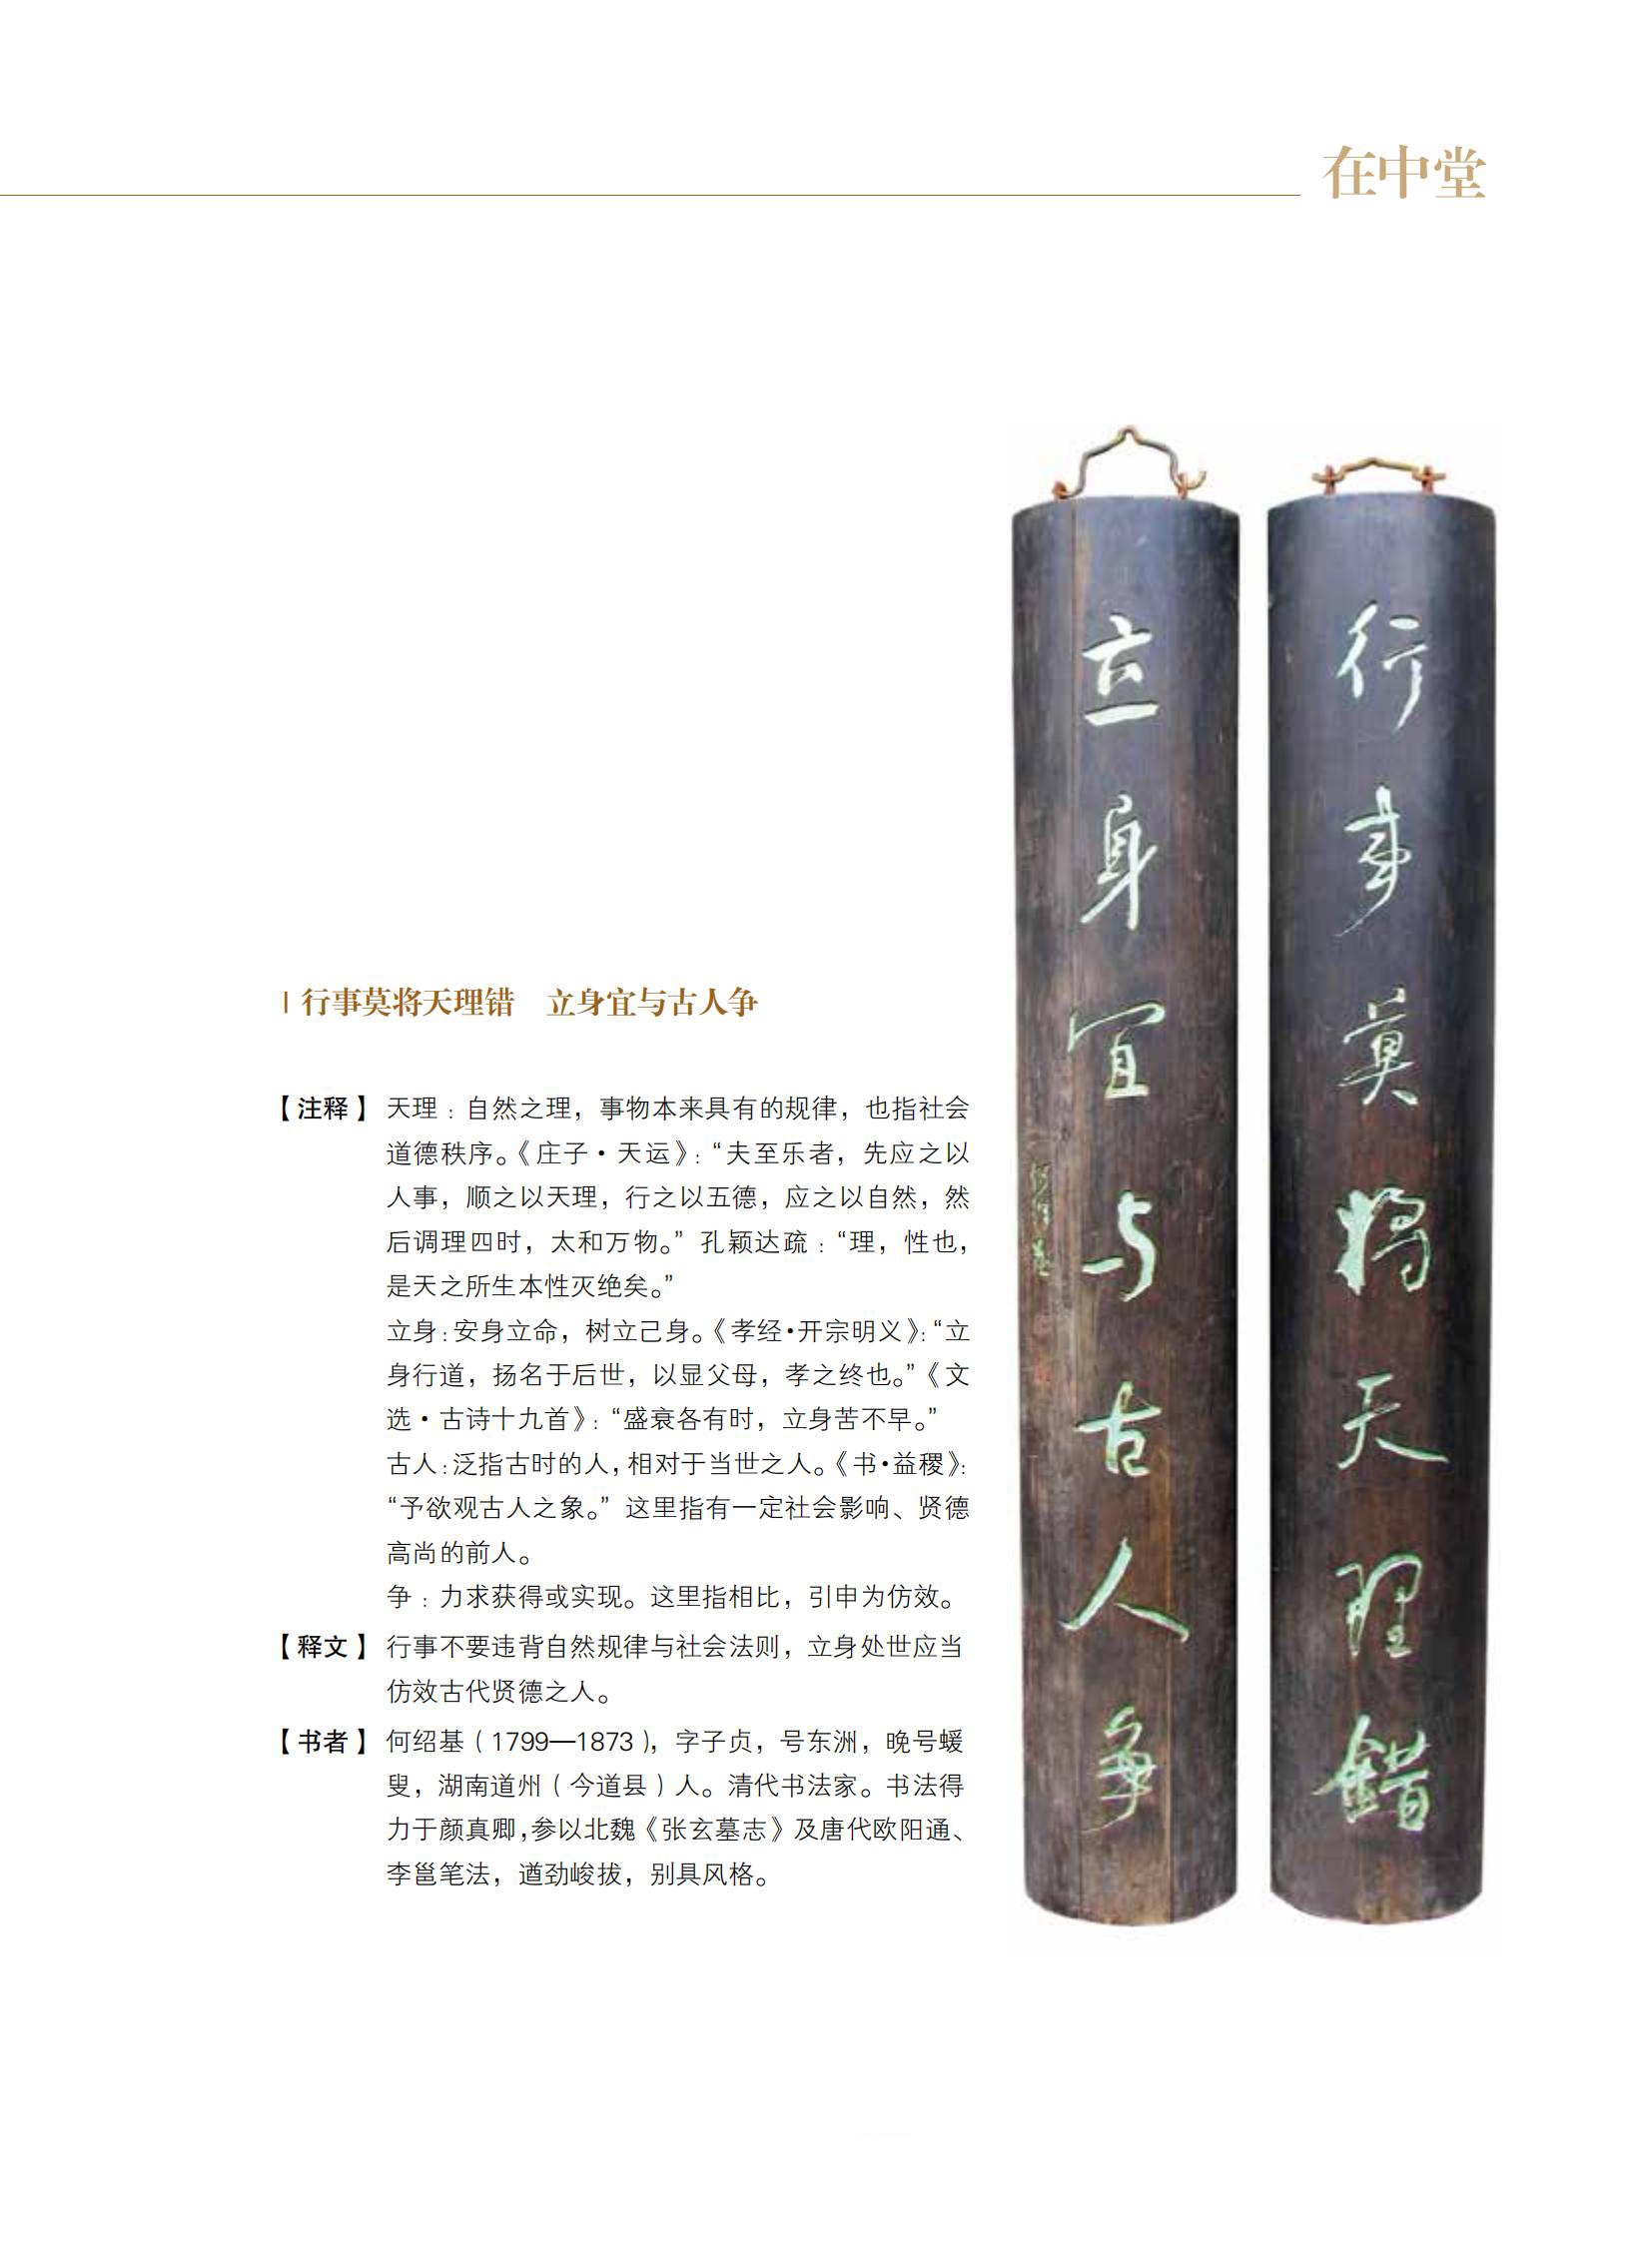 在中堂
行事莫将天理错　立身宜与古人争
【注释】天理：自然之理，事物本来具有的规律，也指社会
道德秩序。《庄子·天运》：“夫至乐者，先应之以
人事，顺之以天理，行之以五德，应之以自然，然
后调理四时，太和万物。”孔颖达疏：“理，性也，
是天之所生本性灭绝矣。”
立身：安身立命，树立己身。《孝经·开宗明义》：“立
身行道，扬名于后世，以显父母，孝之终也。”《文
选·古诗十九首》：“盛衰各有时，立身苦不早。”
古人：泛指古时的人，相对于当世之人。《书·益稷》：
“予欲观古人之象。”这里指有一定社会影响、贤德
高尚的前人。
争：力求获得或实现。这里指相比，引申为仿效。
【释文】行事不要违背自然规律与社会法则，立身处世应当
仿效古代贤德之人。
【书者】何绍基（1799—1873），字子贞，号东洲，晚号蝯
叟，湖南道州（今道县）人。清代书法家。书法得
力于颜真卿，参以北魏《张玄墓志》及唐代欧阳通、
李邕笔法，遒劲峻拔，别具风格。
行事莫将天理错
立身宜与古人争